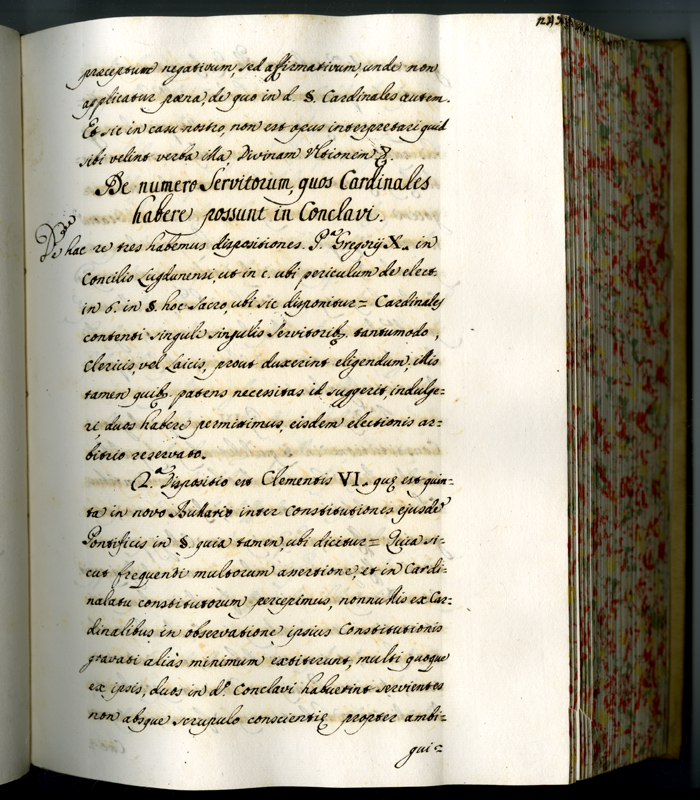 præceptum negativum, sed affirmativum, unde non
applicatur pœna, de quo in d. §. Cardinales autem.
Et sic in casu nostro, non est opus interpretari quid
sibi velint verba illa, Divinam Ultionem &
De numero Servitorum, quos Cardinales
habere possunt in Conclavi.
De hac re tres habemus dispositiones. P.ª Gregorij X. in
Concilio Lugdunensi, ut in c. ubi periculum de elect.
in 6. in §. hoc Sacro, ubi sic disponitur = Cardinales
contenti singuli singulis servitorib9 tantumodo,
Clericis, vel Laicis, prout duxerint eligendum. illis
tamen quib9 patens necessitas id suggerit, indulge=
re, duos habere permittimus, eisdem electionis ar=
bitrio reservato.
2.ª Dispositio est Clementis VI. quę est quin=
ta in novo Bullario inter Constitutiones ejusdē
Pontificis in §. quia tamen, ubi dicitur = Quia si=
cut frequenti multorum assertione, et in Cardi=
nalatu constitutorum percepimus, nonnullis ex Car=
dinalibus in observatione ipsius Constitutionis
gravati aliàs minimum extiterunt, multi quoque
ex ipsis, duos in d.º Conclavi habuerint servientes
non absque scrupulo conscientię propter ambi=
gui=